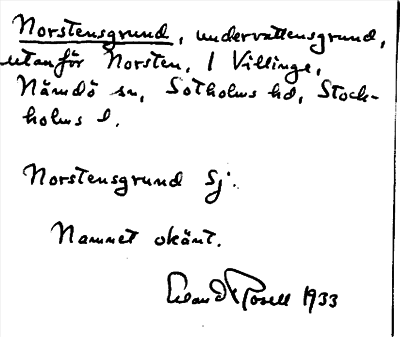 Norstensgrund, undervattensgrund,
utanför Norsten, 1 Villinge,
Nämdö sn, Sotholms hd, Stock-
holms l.
Norstensgrund Sj.
Namnet okänt.
Rosell 1933